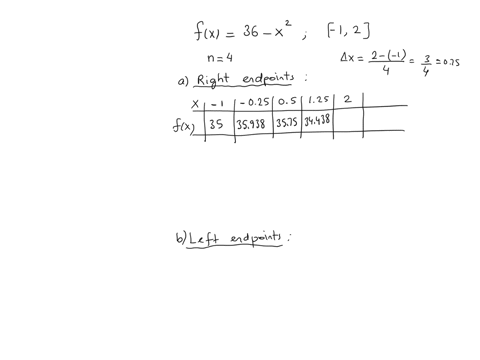 f(x) = 36 - x² ; [-1, 2]
n = 4 Δx = 2-(-1)/4 = 3/4 = 0.75
a) Right endpoints :
x | -1 | -0.25 | 0.5 | 1.25 | 2
f(x) | 35 | 35.938 | 35.75 | 34.438
b) Left endpoints :